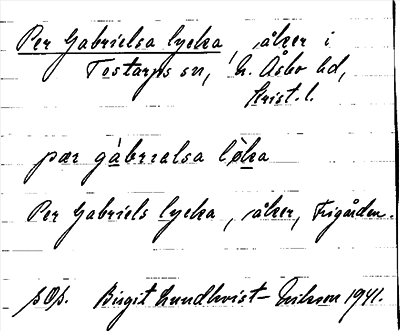 Per Gabrielsa lycka, åker i
Tostarps sn, N. Åsbo hd,
Krist. l.
pær gàbrıalsa lø̀ka
Per Gabriels lycka, åker, Frigården.
sOs. Birgit Lundkvist-Erikson 1941.